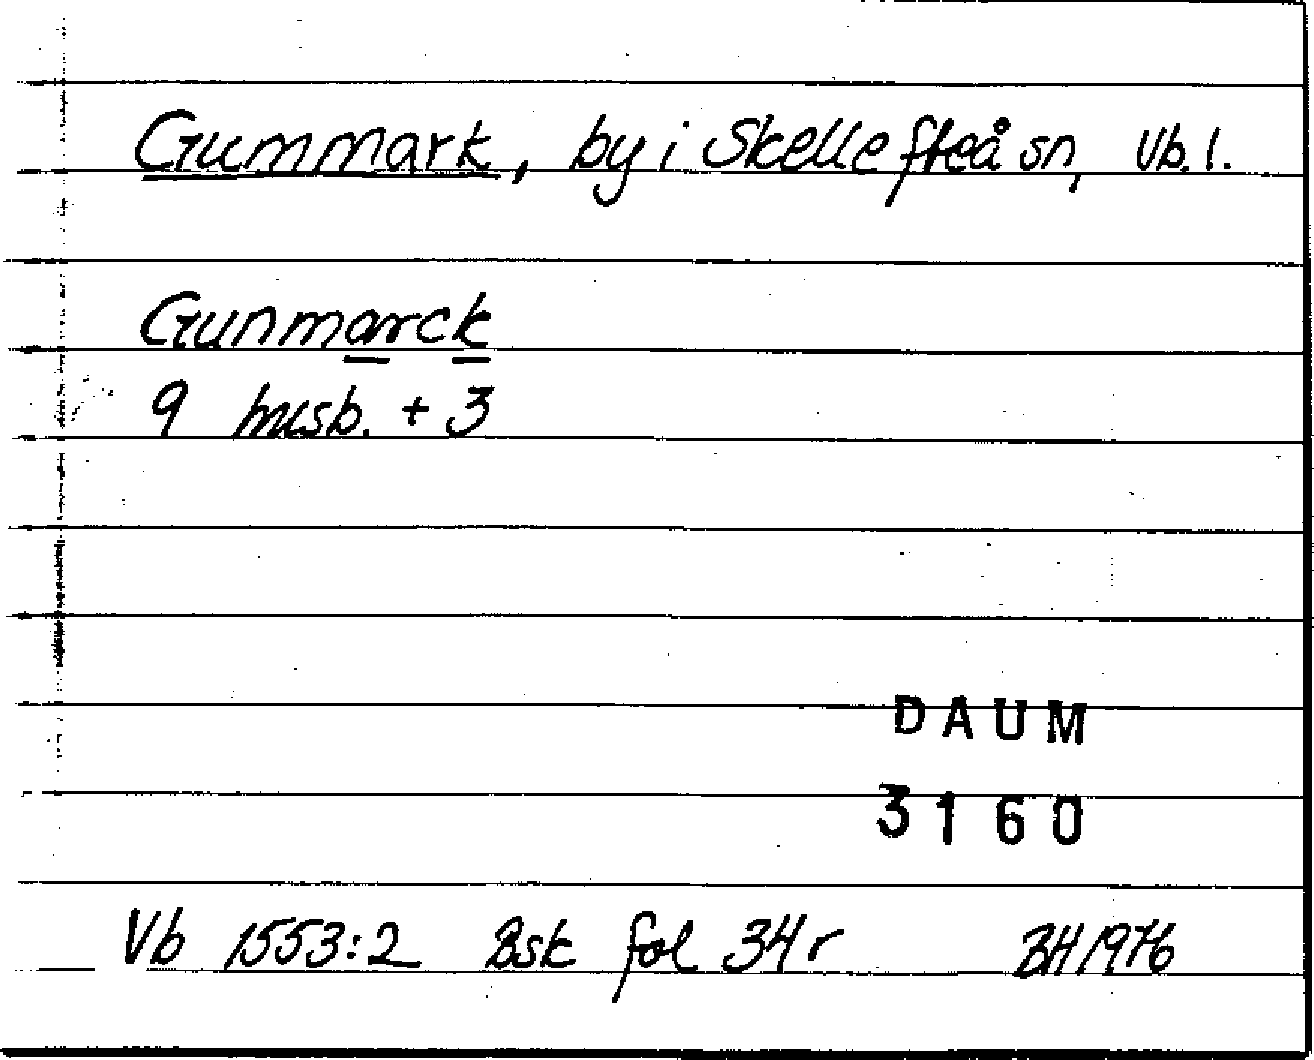 Gummark, by i Skellefteå sn, Vb. l.
Gunmarck
9 husb. + 3
DAUM
3160
Vb 1553:2 Bsk fol 34r BH 1976